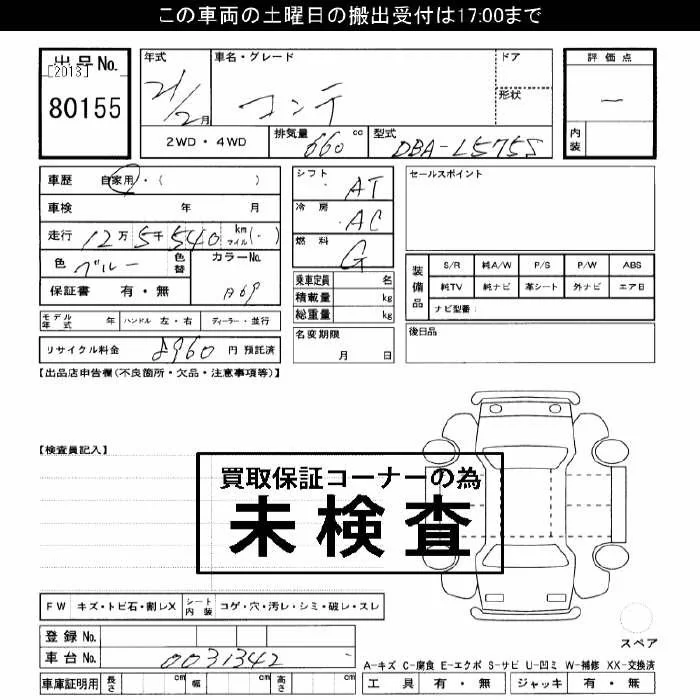 この車両の土曜日の搬出受付は17:00まで
出品No. [2013] 80155
年式 21/2月
車名・グレード コンテ
ドア
形状
評価点 —
内装
2WD・4WD
排気量 660 cc
型式 DBA-L575S
車歴 自家用・( )
車検 年 月
走行 12万5千540 km マイル(・)
色 ブルー 色替
カラーNo. B69
保証書 有・無
シフト AT
冷房 AC
燃料 G
乗車定員 名
積載量 kg
総重量 kg
セールスポイント
装備品 S/R 純A/W P/S P/W ABS
純TV 純ナビ 革シート 外ナビ エアB
ナビ型番:
モデル年式 年 ハンドル 左・右 ディーラー・並行
名変期限 月 日
後日品
リサイクル料金 8960 円 預託済
【出品店申告欄(不良箇所・欠品・注意事項等)】
【検査員記入】
買取保証コーナーの為
未検査
FW キズ・トビ石・割レX シート内装 コゲ・穴・汚レ・シミ・破レ・スレ
スペア
登録No.
車台No. 0031342
A-キズ C-腐食 E-エクボ S-サビ U-凹ミ W-補修 XX-交換済
車庫証明用 長さ cm 幅 cm 高さ cm
工具 有・無 ジャッキ 有・無